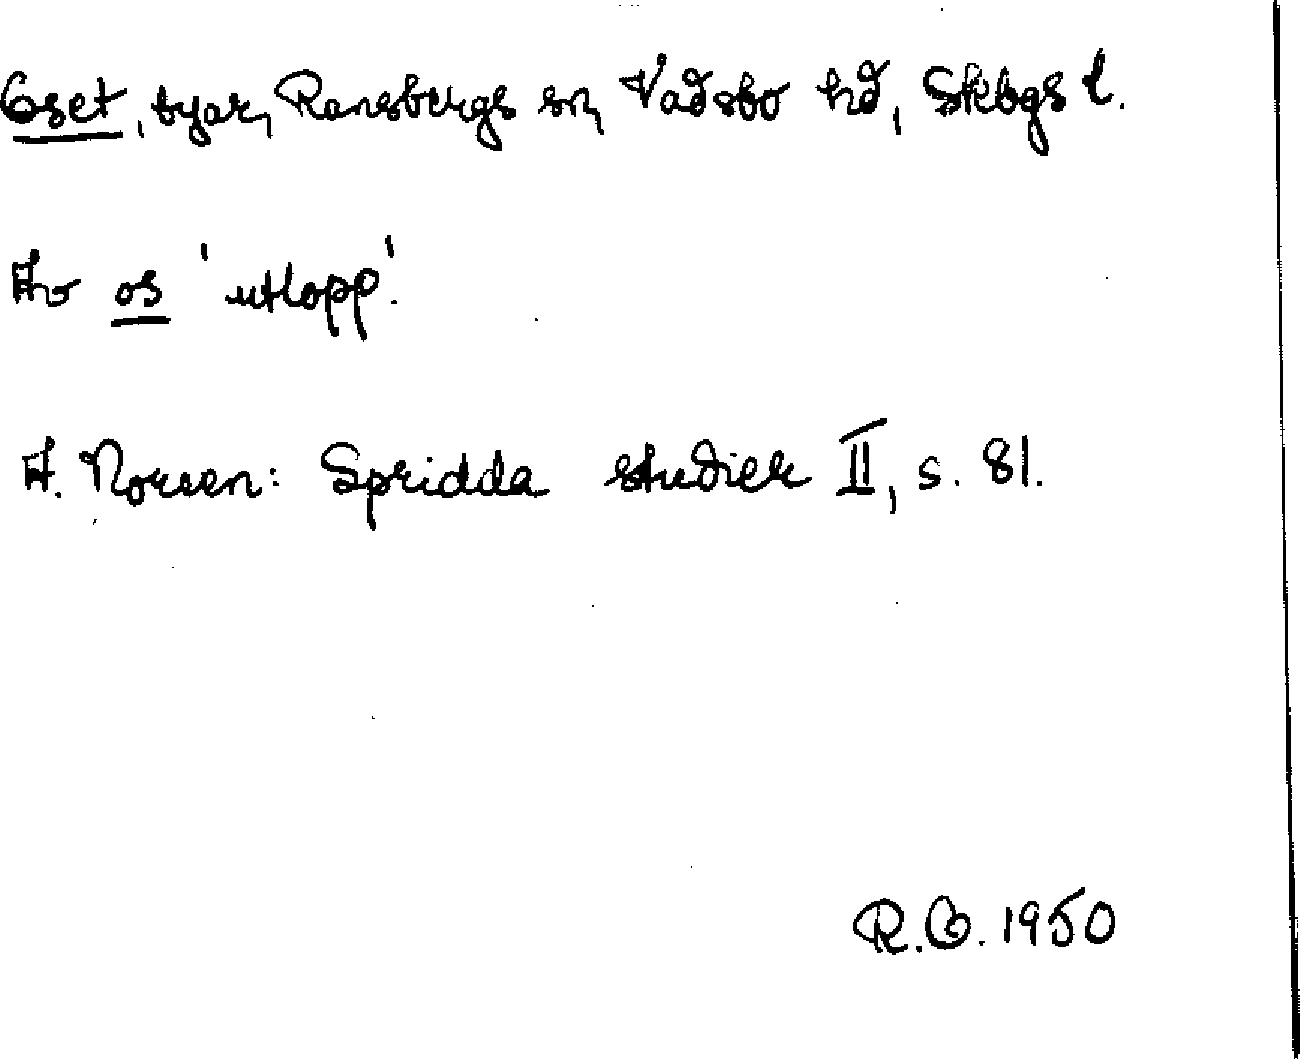 Oset, byar, Ransbergs sn, Vadsbo hd, Skbgs l.
Av os 'utlopp'.
A. Noreen: Spridda studier II, s. 81.
R.O. 1950